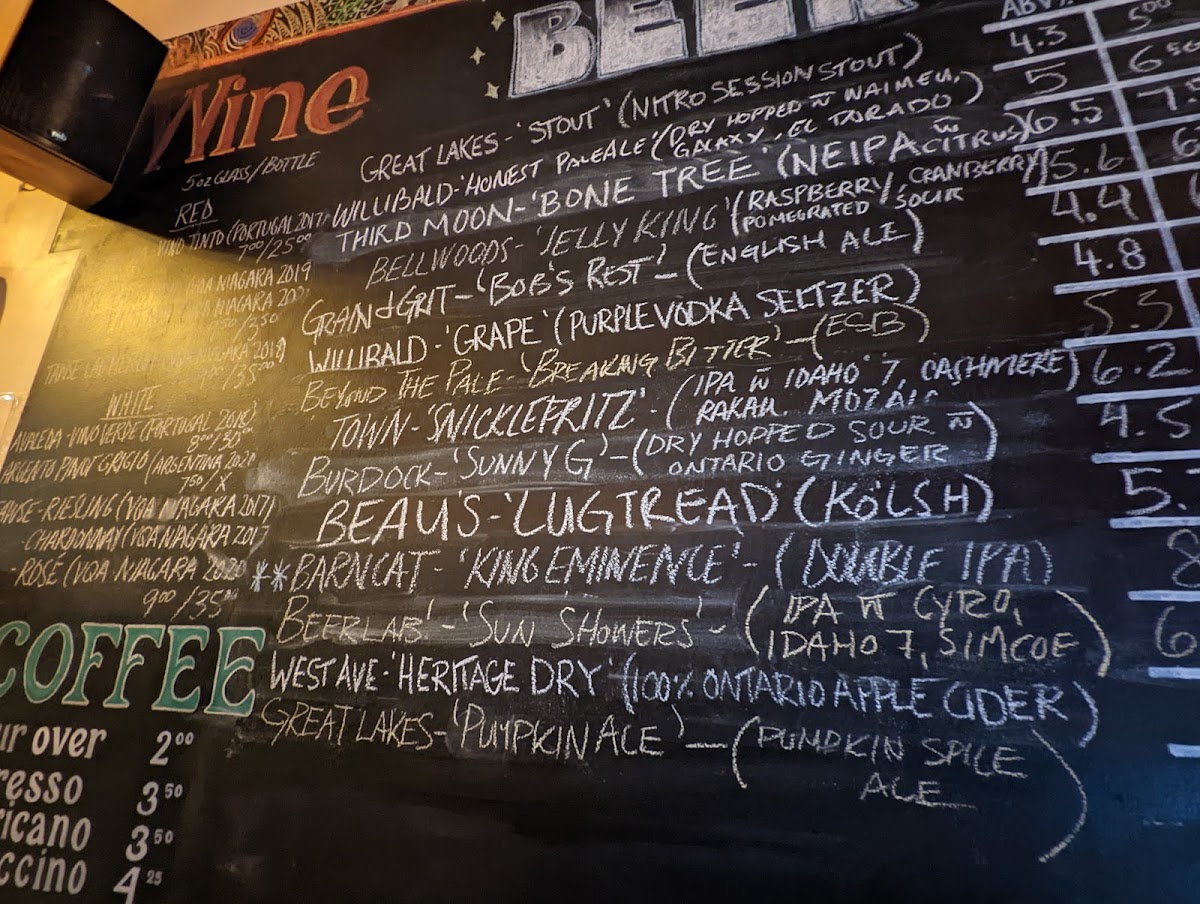 Wine
5oz GLASS/BOTTLE
RED
VINO TINTO (PORTUGAL 2017)
7.00/25.00
VQA NIAGARA 2019
NIAGARA
WHITE
AVALEDA - VINO VERDE (PORTUGAL 2018)
8.00/30.00
ARGENTO PINOT GRIGIO (ARGENTINA 2020
7.50/X
- RIESLING (VQA NIAGARA 2017)
- CHARDONNAY (VQA NIAGARA 2017
- ROSE (VQA NIAGARA 2020
9.00/35.00
COFFEE
ur over 2.00
resso 3.50
ricano 3.50
ccino 4.25
BEER
ABV%
GREAT LAKES - 'STOUT' (NITRO SESSION STOUT) 4.3 5.00
WILLIBALD - 'HONEST PALE ALE' (DRY HOPPED W̄ WAIMEU, 5 6.50
GALAXY, EL DORADO)
THIRD MOON - 'BONE TREE' (NEIPA W̄ CITRUS) 6.5
BELLWOODS - 'JELLY KING' (RASPBERRY, CRANBERRY 5.6
POMEGRATED SOUR
GRAIN & GRIT - 'BOB'S REST' - (ENGLISH ALE) 4.4
WILLIBALD - 'GRAPE' (PURPLE VODKA SELTZER) 4.8
BEYOND THE PALE - 'BREAKING BITTER' - (ESB) 5.3
TOWN - 'SNICKLEFRITZ' - (IPA W̄ IDAHO 7, CASHMERE) 6.2
RAKAU, MOZAIC
BURDOCK - 'SUNNY G' - (DRY HOPPED SOUR W̄ 4.5
ONTARIO GINGER)
BEAU'S - 'LUGTREAD' (KÖLSH) 5.
**BARNCAT - 'KING EMINENCE' - (DOUBLE IPA) 8
BEERLAB' - 'SUN SHOWERS' - (IPA W̄ CYRO, 6
IDAHO 7, SIMCOE)
WEST AVE - 'HERITAGE DRY' (100% ONTARIO APPLE CIDER)
GREAT LAKES - 'PUMPKIN ALE' - (PUMPKIN SPICE
ALE)